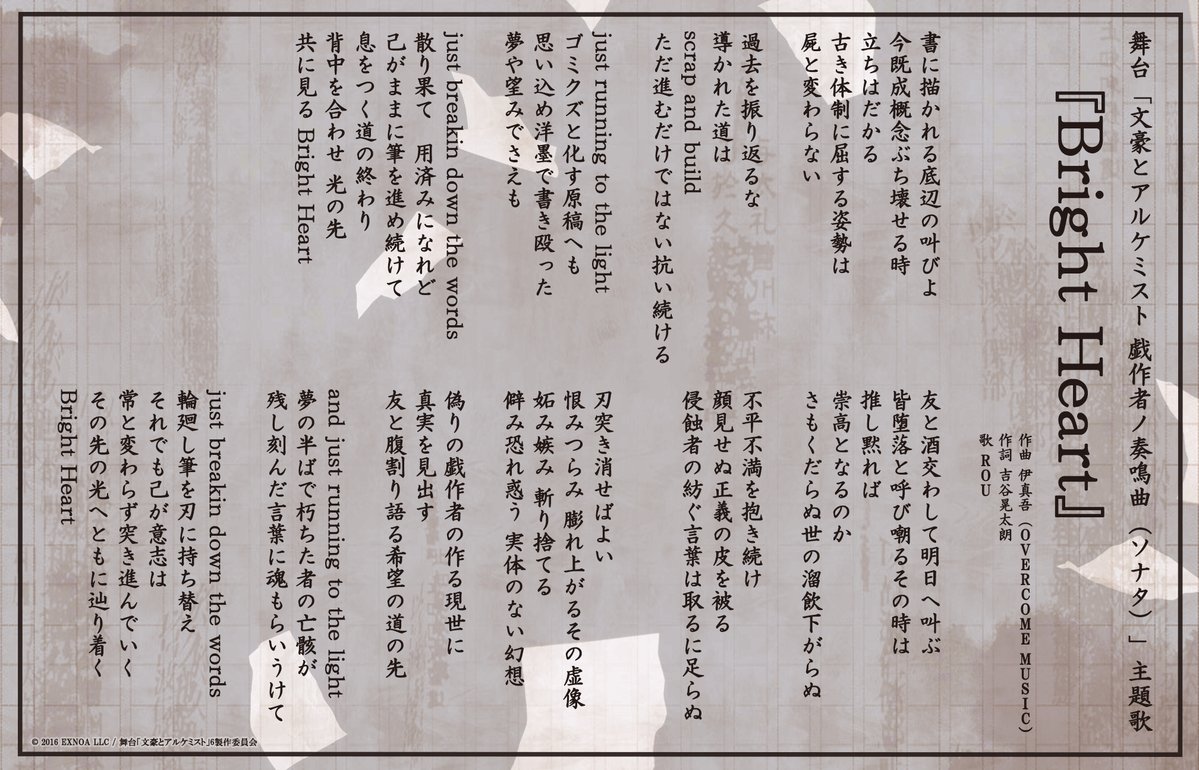 舞台「文豪とアルケミスト 戯作者ノ奏鳴曲（ソナタ）」主題歌
『Bright Heart』
作曲 伊真吾（OVERCOME MUSIC）
作詞 吉谷晃太朗
歌 ROU
書に描かれる底辺の叫びよ
今既成概念ぶち壊せる時
立ちはだかる
古き体制に屈する姿勢は
屍と変わらない
過去を振り返るな
導かれた道は
scrap and build
ただ進むだけではない抗い続ける
just running to the light
ゴミクズと化す原稿へも
思い込め洋墨で書き殴った
夢や望みでさえも
just breakin down the words
散り果て 用済みになれど
己がままに筆を進め続けて
息をつく道の終わり
背中を合わせ 光の先
共に見る Bright Heart
友と酒交わして明日へ叫ぶ
皆堕落と呼び嘲るその時は
推し黙れば
崇高となるのか
さもくだらぬ世の溜飲下がらぬ
不平不満を抱き続け
顔見せぬ正義の皮を被る
侵蝕者の紡ぐ言葉は取るに足らぬ
刃突き消せばよい
恨みつらみ 膨れ上がるその虚像
妬み嫉み 斬り捨てる
僻み恐れ惑う 実体のない幻想
偽りの戯作者の作る現世に
真実を見出す
友と腹割り語る希望の道の先
and just running to the light
夢の半ばで朽ちた者の亡骸が
残し刻んだ言葉に魂もらいうけて
just breakin down the words
輪廻し筆を刃に持ち替え
それでも己が意志は
常と変わらず突き進んでいく
その先の光へともに辿り着く
Bright Heart
© 2016 EXNOA LLC / 舞台「文豪とアルケミスト」6製作委員会